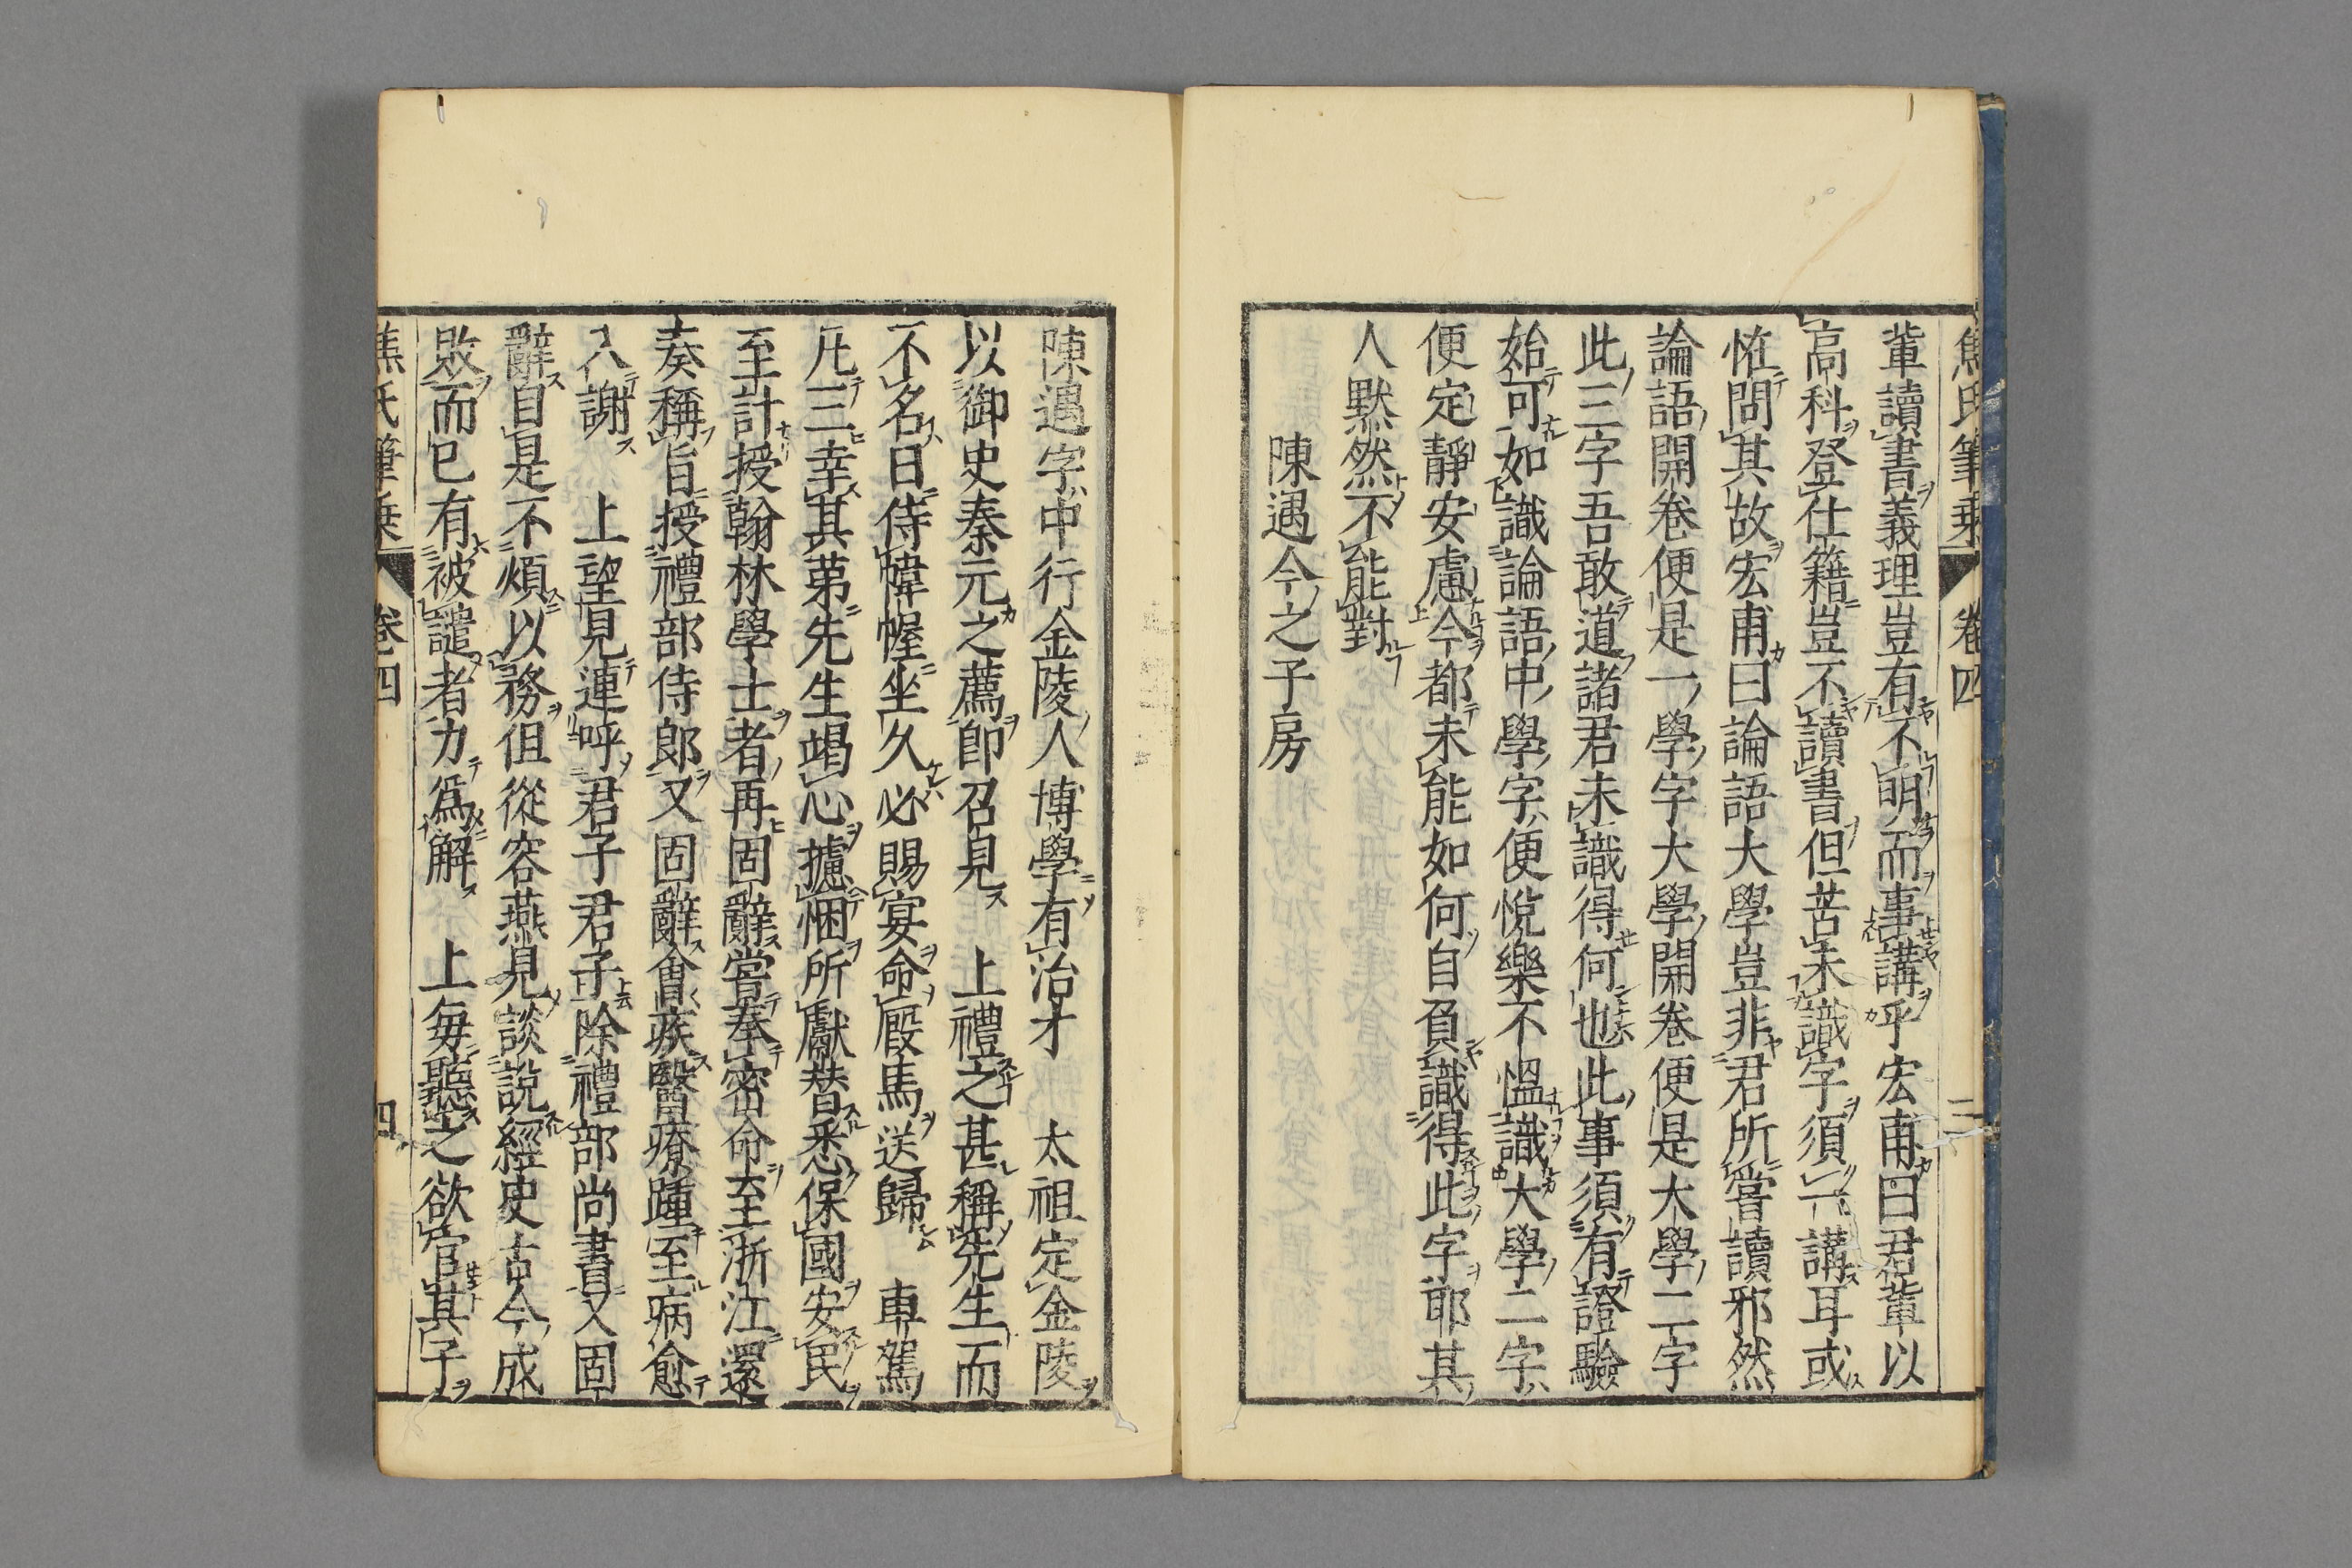 焦氏筆乗 卷四 三
輩讀書義理豈有不明而事講乎宏甫曰君輩以
高科登仕籍豈不讀書但苦未識字須一講耳或
恠問其故宏甫曰論語大學豈非君所嘗讀邪然
論語開卷便是一學字大學開卷便是大學二字
此三字吾敢道諸君未識得何也此事須有證驗
始可如識論語中學字便悅樂不慍識大學二字
便定靜安慮今都未能如何自負識得此字耶其
人默然不能對
陳遇今之子房
陳遇字中行金陵人博學有治才 太祖定金陵
以御史秦元之薦卽召見 上禮之甚稱先生而
不名日侍幃幄坐久必賜宴命廐馬送歸 車駕
凡三幸其第先生竭心攄悃所獻替悉保國安民
至計授翰林學士者再固辭嘗奉密命至浙江還
奏稱旨授禮部侍郎又固辭會疾醫療踵至病愈
入謝 上望見連呼君子君子除禮部尚書又固
辭自是不煩以務但從容燕見談說經史古今成
敗而已有被譴者力爲解 上每聽之欲官其子
焦氏筆乗 卷四 四